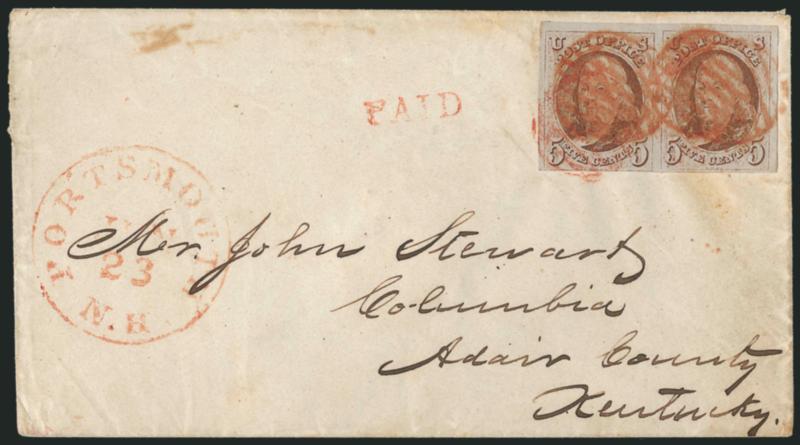 U S
POST OFFICE
5 FIVE CENTS 5
U S
POST OFFICE
5 FIVE CENTS 5
PAID
PORTSMOUTH
23
N.H
Mr. John Stewart
Columbia
Adair County
Kentucky.